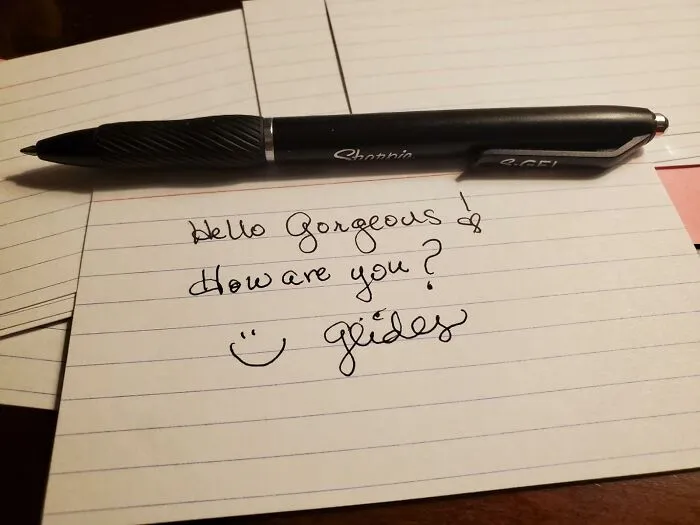 Sharpie
S·GEL
Hello Gorgeous!
How are you?
glides